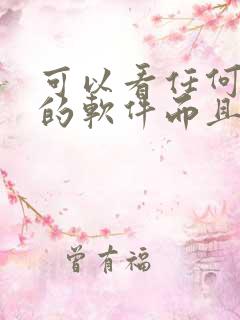 可以看任何
的軟件而且
曾有福